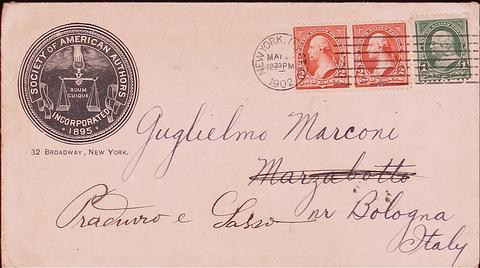 SOCIETY OF AMERICAN AUTHORS
SUUM
CUIQUE
INCORPORATED
1895
32 BROADWAY, NEW YORK.
NEW YORK, N
MAY
1230PM
1902
2 2
2 2
Guglielmo Marconi
Marzabotto
Praduro e Sasso nr Bologna
Italy